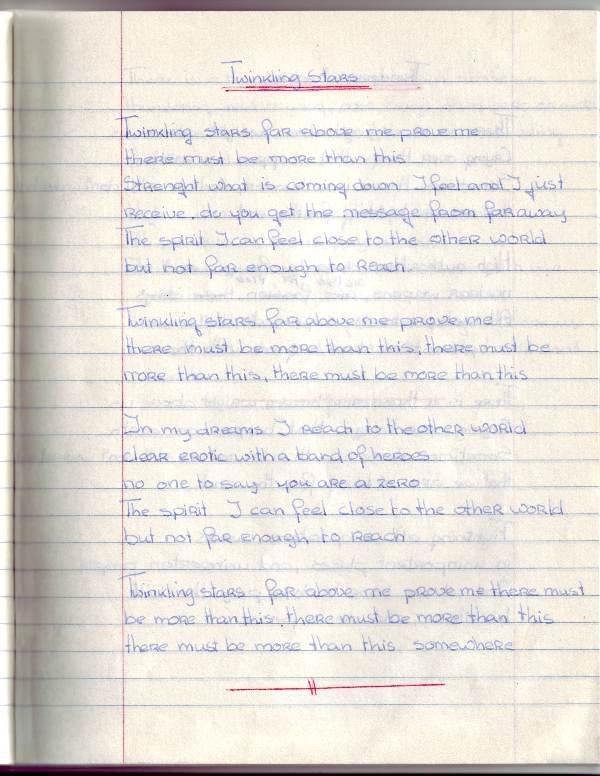 Twinkling Stars
Twinkling stars far above me prove me
there must be more than this
Strenght what is coming down I feel and I just
receive, do you get the message from far away
The spirit I can feel close to the other world
but not far enough to reach.
Twinkling stars far above me prove me
there must be more than this, there must be
more than this, there must be more than this
In my dreams I reach to the other world
clear erotic with a band of heroes
no one to say you are a zero
The spirit I can feel close to the other world
but not far enough to reach
Twinkling stars far above me prove me there must
be more than this, there must be more than this
there must be more than this somewhere